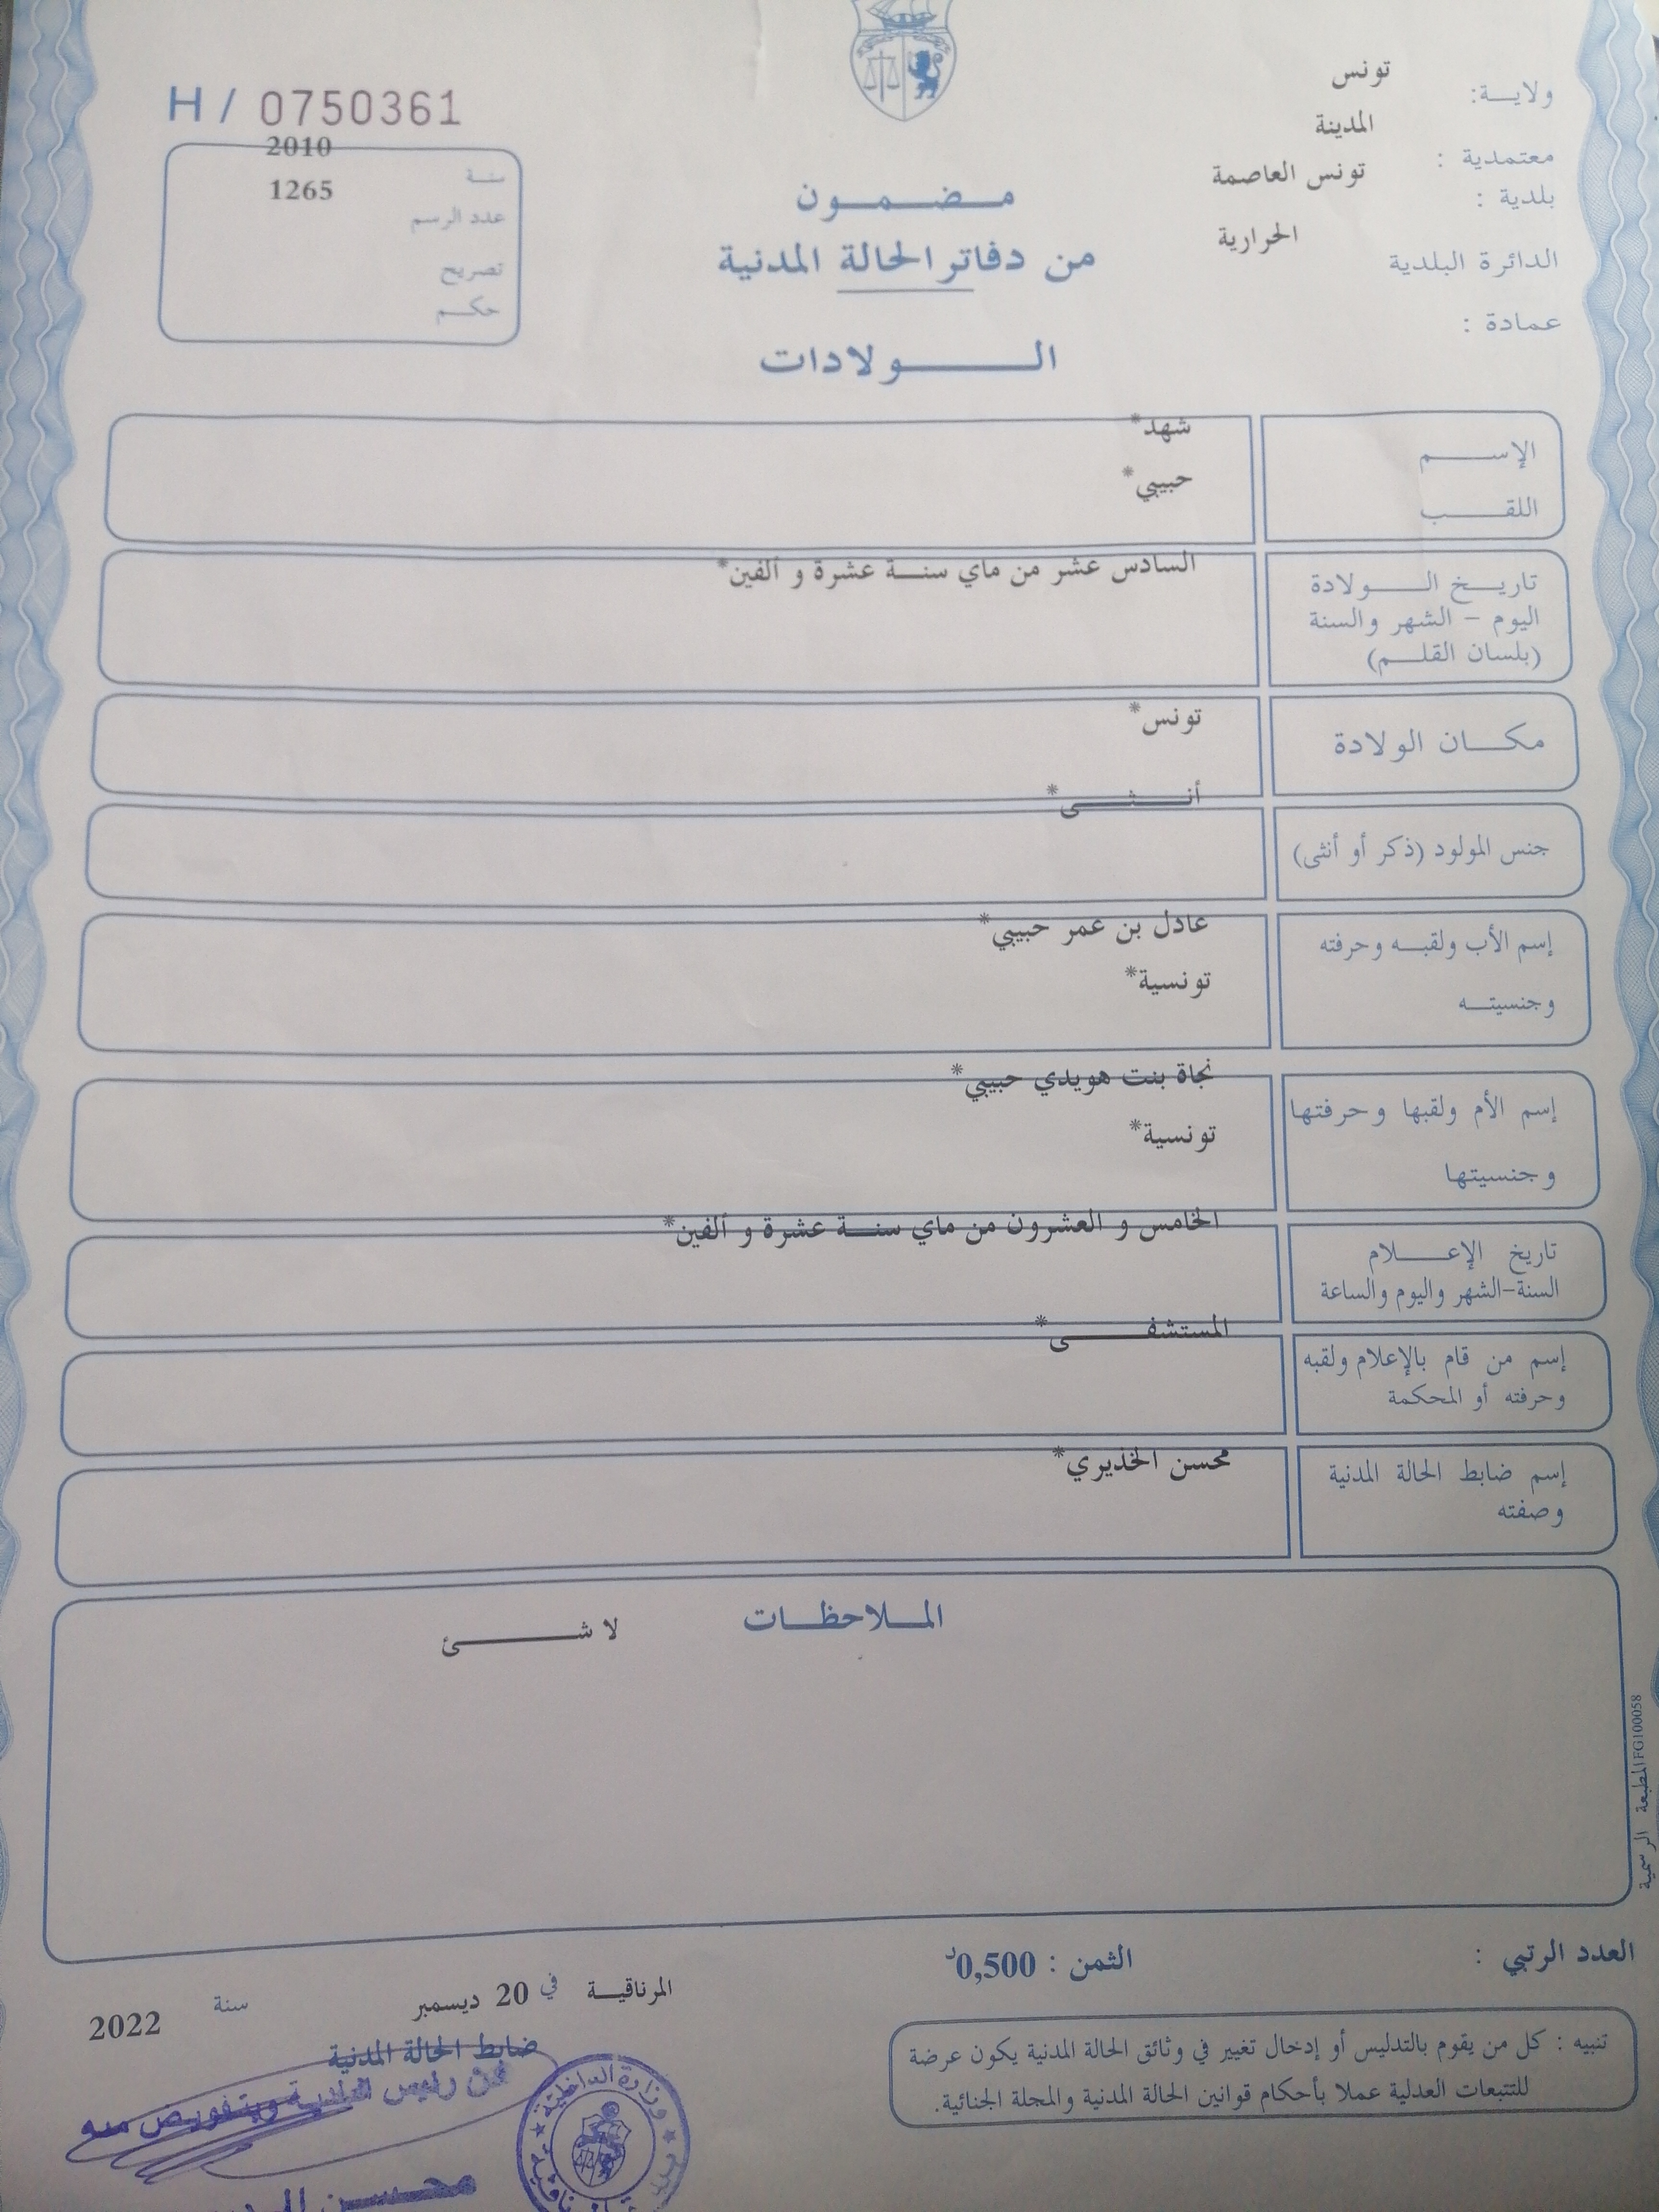 H / 0750361
ولايـــة: تونس
معتمدية : المدينة
بلدية : تونس العاصمة
الدائرة البلدية الحرارية
عمادة :
سنة 2010
عدد الرسم 1265
تصريح
حكــم
مـضـمـون
من دفاتر الحالة المدنية
الـــولادات
الإســـم شهد*
اللقـــب حبيبي*
تاريـخ الـــولادة السادس عشر من ماي سنة عشرة و ألفين*
اليوم - الشهر والسنة
(بلسان القلـم)
مكـان الولادة تونس*
جنس المولود (ذكر أو أنثى) أنـــثـــى*
إسم الأب ولقبـه وحرفته عادل بن عمر حبيبي*
وجنسيتـه تونسية*
إسم الأم ولقبها وحرفتها نجاة بنت هويدي حبيبي*
وجنسيتها تونسية*
تاريخ الإعـــلام الخامس و العشرون من ماي سنة عشرة و ألفين*
السنة-الشهر واليوم والساعة
إسم من قام بالإعلام ولقبه المستشفـــى*
وحرفته أو المحكمة
إسم ضابط الحالة المدنية محسن الخذيري*
وصفته
المـلاحظـات
لا شـــئ
المطبعة الرسمية FG100058
العدد الرتبي :
الثمن : 0,500د
المرناقيـة في 20 ديسمبر سنة 2022
ضابط الحالة المدنية
عن رئيس البلدية وبتفويض منه
محسن
وزارة الداخلية
تنبيه : كل من يقوم بالتدليس أو إدخال تغيير في وثائق الحالة المدنية يكون عرضة
للتتبعات العدلية عملا بأحكام قوانين الحالة المدنية والمجلة الجنائية.